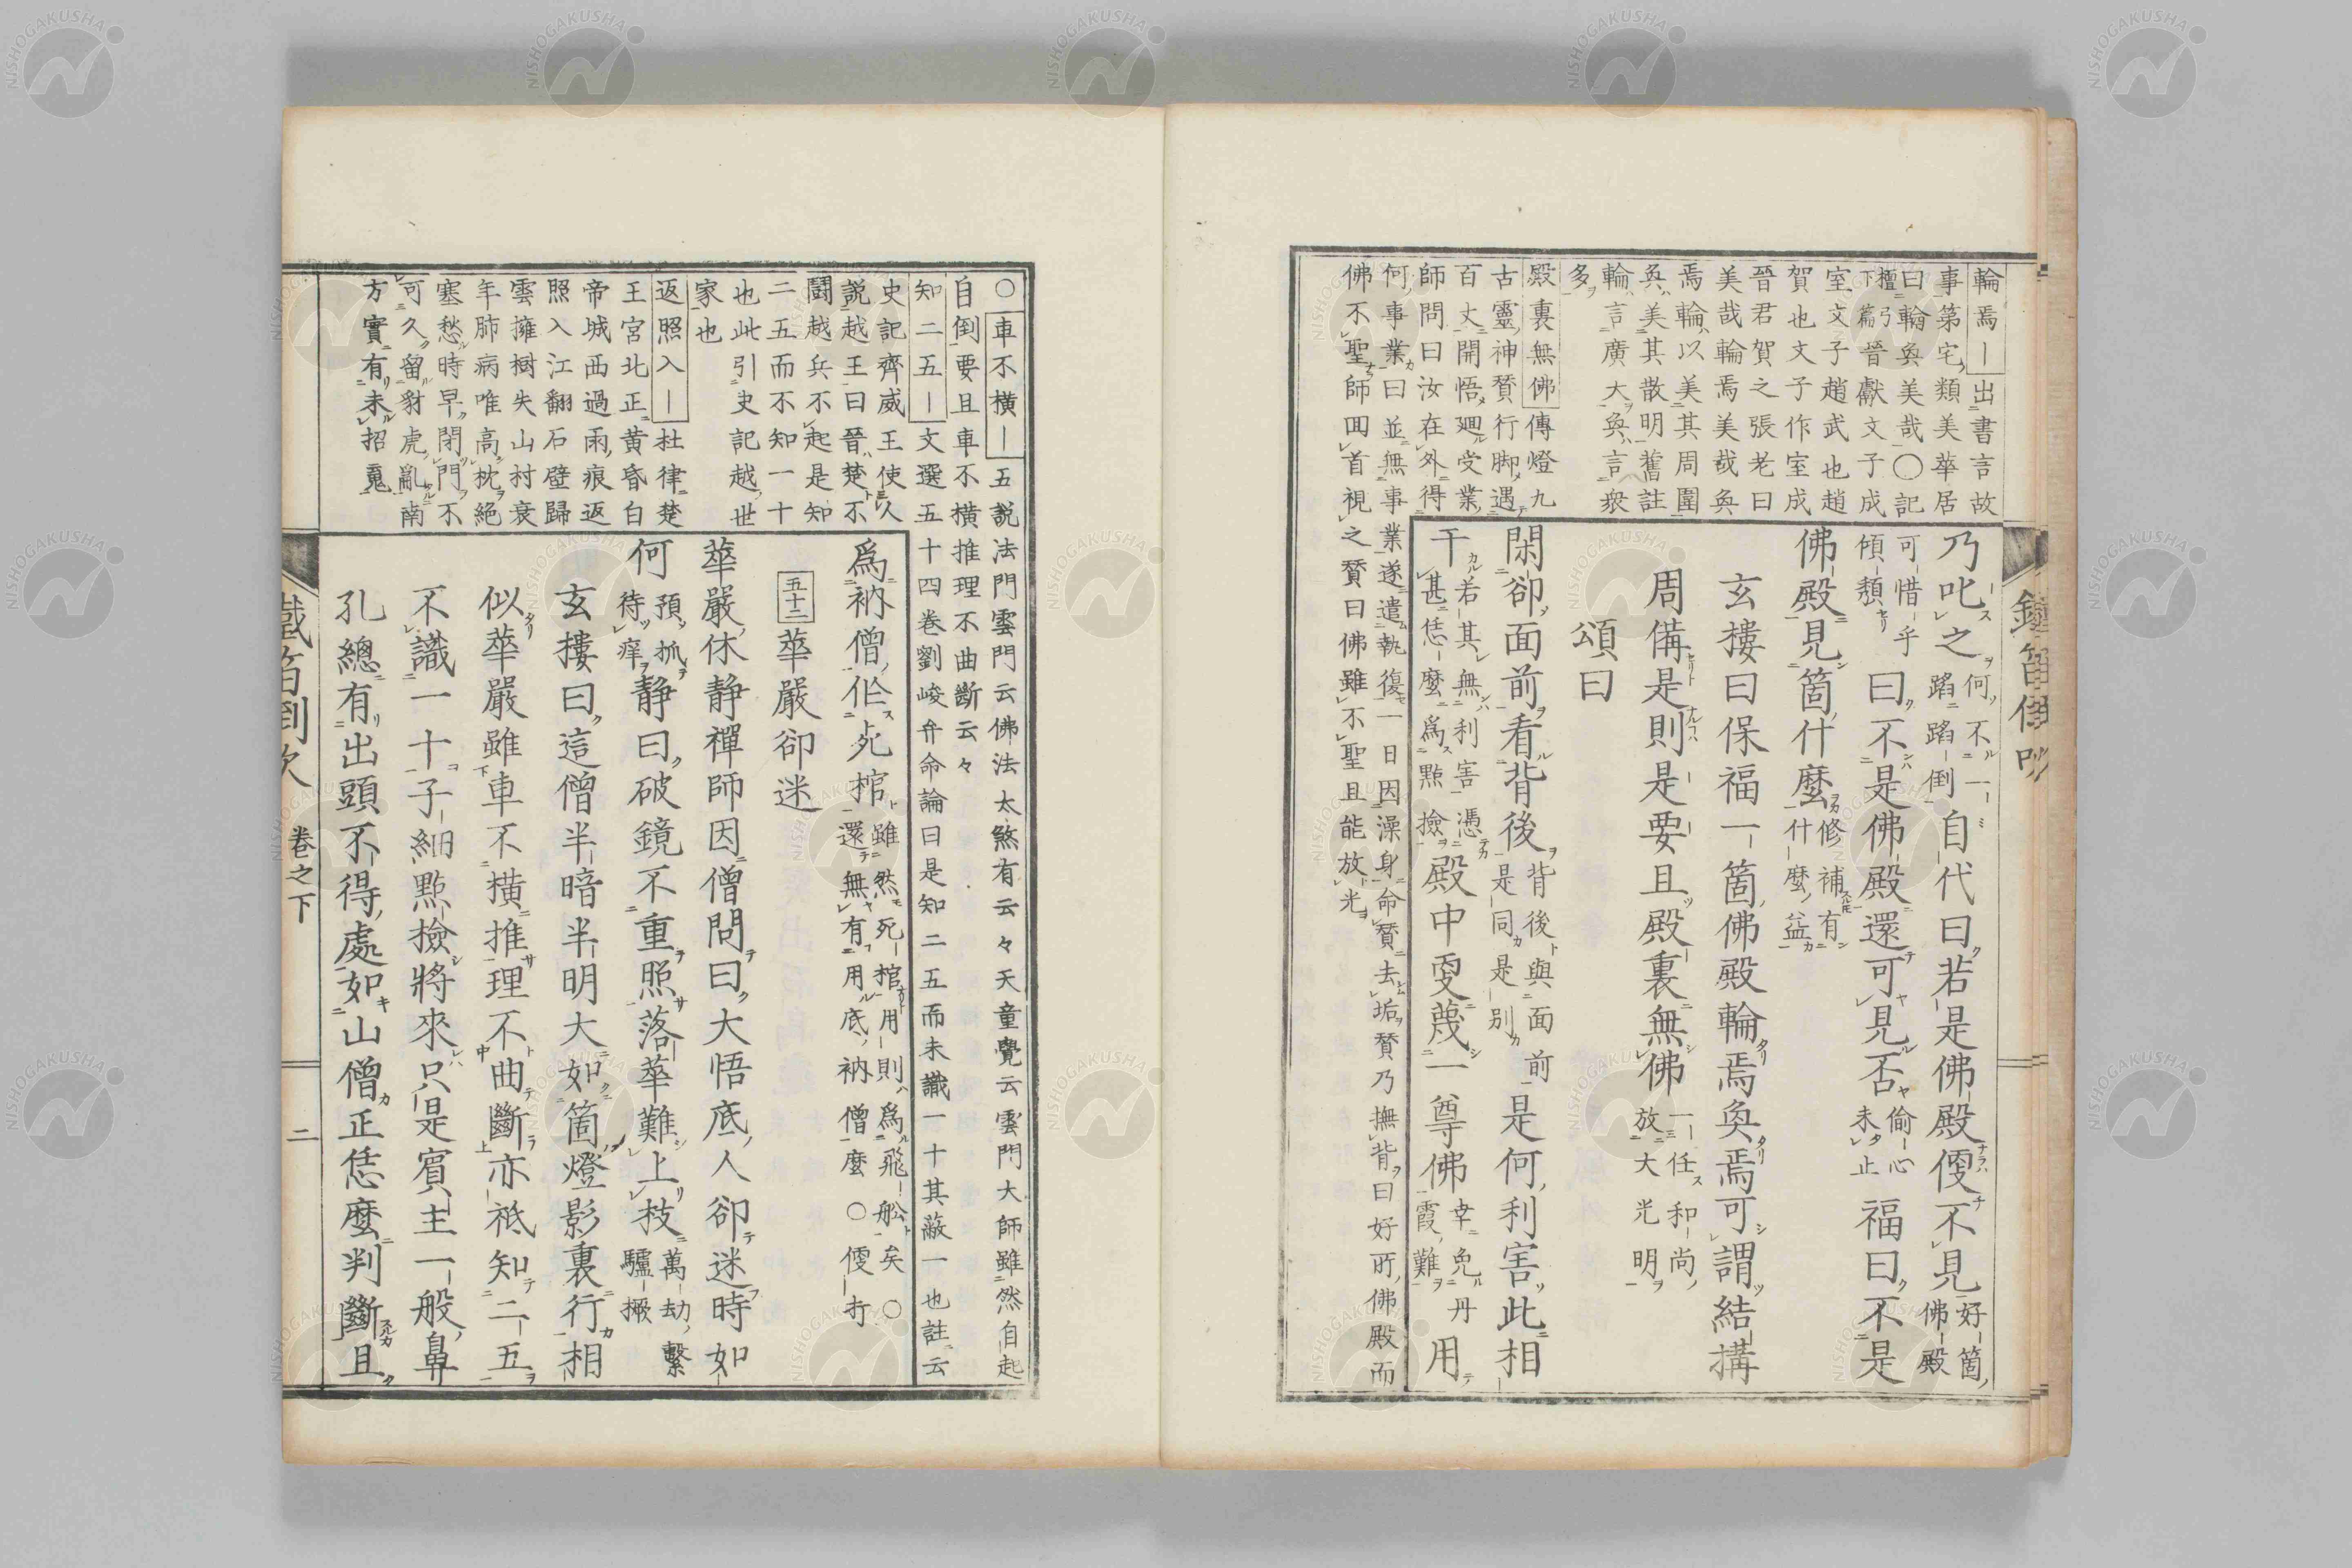 輪焉｜出書言故
事第宅類美華居
曰輪奐美哉○記
檀弓下篇晉獻文子成
室文子趙武也趙
賀也文子作室成
晉君賀之張老曰
美哉輪焉美哉奐
焉輪以美其周圍
奐美其散明舊註
輪言廣大奐言衆
多
殿裏無佛傳燈九
古靈神贊行脚遇
百丈開悟廻受業
師問曰汝在外得
何事業曰並無事業遂遣執復一日因澡身命贊去垢贊乃撫背曰好所佛殿而
佛不聖師回首視之贊曰佛雖不聖且能放光
乃叱之何不一蹈蹈倒自代曰若是佛殿便不見好箇佛殿
可惜乎傾頽曰不是佛殿還可見否偷心未止福曰不是
佛殿見箇什麼修補有什麼益
玄樓曰保福一箇佛殿輪焉奐焉可謂結搆
周備是則是要且殿裏無佛一任和尚放大光明
頌曰
閑卻面前看背後背後與面前是同是別是何利害此相
干若其無利害憑甚恁麼爲點撿殿中更蔑一尊佛幸免丹霞難用
鐵笛倒吹
○車不横｜五説法門雲門云佛法太煞有云々天童覺云雲門大師雖然自起
自倒要且車不横推理不曲斷云々
知二五｜文選五十四卷劉峻弁命論曰是知二五而未識一十其蔽一也註云
史記齊威王使人
説越王曰晉楚不
鬪越兵不起是知
二五而不知一十
也此引史記越世
家也
返照入｜杜律楚
王宮北正黄昏白
帝城西過雨痕返
照入江翻石壁歸
雲擁樹失山村衰
年肺病唯高枕絕
塞愁時早閉門不
可久留豺虎亂南
方實有未招䰟
爲衲僧㑅死棺雖然死棺用則爲飛舩矣○還無有用底衲僧麼○便打
五十二華嚴卻迷
華嚴休静禪師因僧問曰大悟底人卻迷時如
何預抓待痒静曰破鏡不重照落華難上枝萬劫繋驢撅
玄樓曰這僧半暗半明大如箇燈影裏行相
似華嚴雖車不横推理不曲斷亦祗知二五
不識一十子細點撿將來只是賓主一般鼻
孔總有出頭不得處如山僧正恁麼判斷且
鐵笛倒吹 卷之下 二